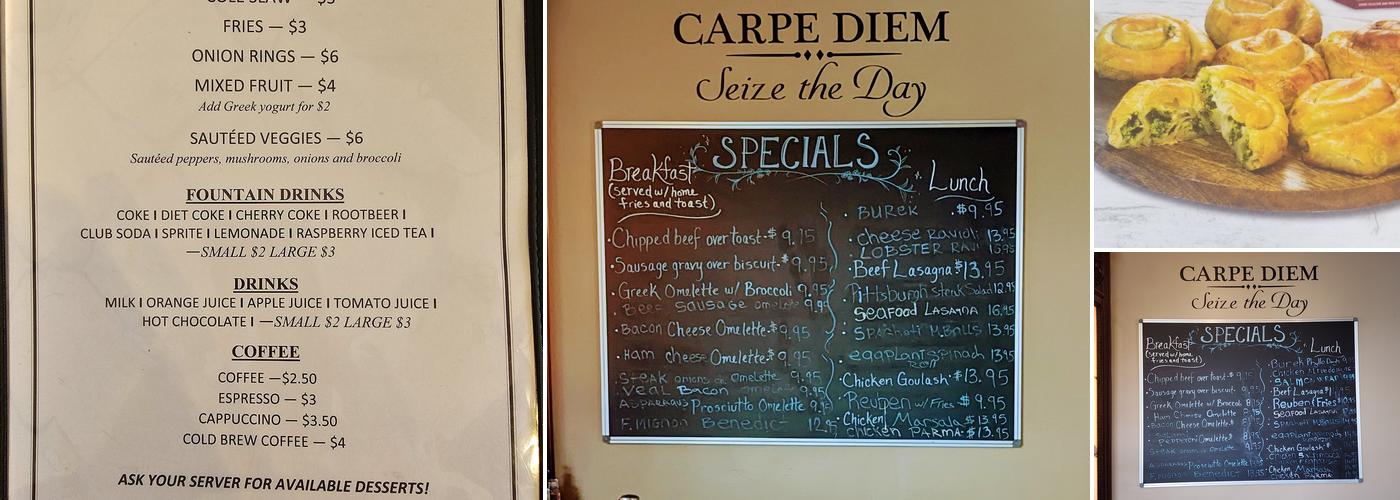 FRIES — $3
ONION RINGS — $6
MIXED FRUIT — $4
Add Greek yogurt for $2
SAUTÉED VEGGIES — $6
Sautéed peppers, mushrooms, onions and broccoli
FOUNTAIN DRINKS
COKE I DIET COKE I CHERRY COKE I ROOTBEER I
CLUB SODA I SPRITE I LEMONADE I RASPBERRY ICED TEA I
—SMALL $2 LARGE $3
DRINKS
MILK I ORANGE JUICE I APPLE JUICE I TOMATO JUICE I
HOT CHOCOLATE I —SMALL $2 LARGE $3
COFFEE
COFFEE —$2.50
ESPRESSO — $3
CAPPUCCINO — $3.50
COLD BREW COFFEE — $4
ASK YOUR SERVER FOR AVAILABLE DESSERTS!
CARPE DIEM
Seize the Day
SPECIALS
Breakfast
(served w/ home
fries and toast)
Chipped beef over toast-$ 9.95
Sausage gravy over biscuit- 9.95
Greek Omelette w/ Broccoli 9.95
Beef Sausage omelette 9.95
Bacon Cheese Omelette-$9.95
Ham cheese Omelette-$9.95
Steak onions Omelette 9.95
Veal Bacon 9.95
Asparagus Prosciutto Omelette
F. Mignon Benedic 12.95
Lunch
BUREK .$9.95
cheese Ravioli 13.95
LOBSTER RAVI
Beef Lasagna $13.95
Pittsburgh Steak Salad 12.95
Seafood LASAGNA 16.95
Spaghetti M.Balls 13.95
eggplant Spinach 13.95
Chicken Goulash-$13.95
Reuben w/ Fries $9.95
Chicken Marsala $13.95
chicken PARMA-$13.95
CARPE DIEM
Seize the Day
SPECIALS
Breakfast
(served w/ home
fries and toast)
Chipped beef over toast-$
Sausage gravy over biscuit
Greek Omelette w/ Broccoli
Ham Cheese Omelette
Bacon Cheese Omelette
Pepperoni Omelette
Prosciutto Omelette
Lunch
Burek
Beef Lasagna
Reuben (Fries)
Seafood LASAGNA
Chicken Goulash
Chicken Marsala